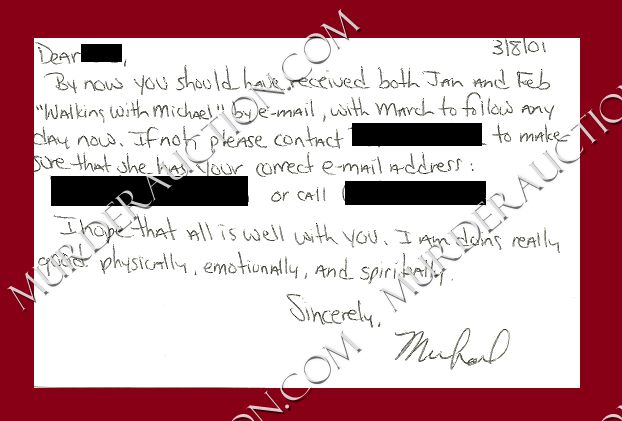 3/8/01
Dear
By now you should have received both Jan and Feb
"Walking with Michael" by e-mail, with March to follow any
day now. If not, please contact to make
sure that she has your correct e-mail address:
or call (
I hope that all is well with you. I am doing really
good physically, emotionally, and spiritually.
Sincerely,
Michael
MURDERAUCTION.COM
MURDERAUCTION.COM